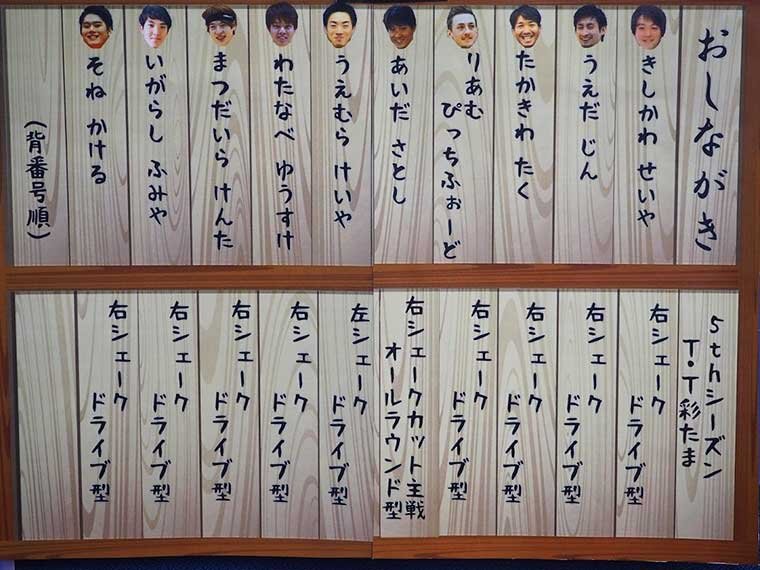 おしながき
きしかわ せいや
うえだ じん
たかきわ たく
りあむ
ぴっちふぉーど
あいだ さとし
うえむら けいや
わたなべ ゆうすけ
まつだいら けんた
いがらし ふみや
そね かける
(背番号順)
5thシーズン
T.T彩たま
右シェーク
ドライブ型
右シェーク
ドライブ型
右シェーク
ドライブ型
右シェーク
ドライブ型
右シェークカット主戦
オールラウンド型
左シェーク
ドライブ型
右シェーク
ドライブ型
右シェーク
ドライブ型
右シェーク
ドライブ型
右シェーク
ドライブ型